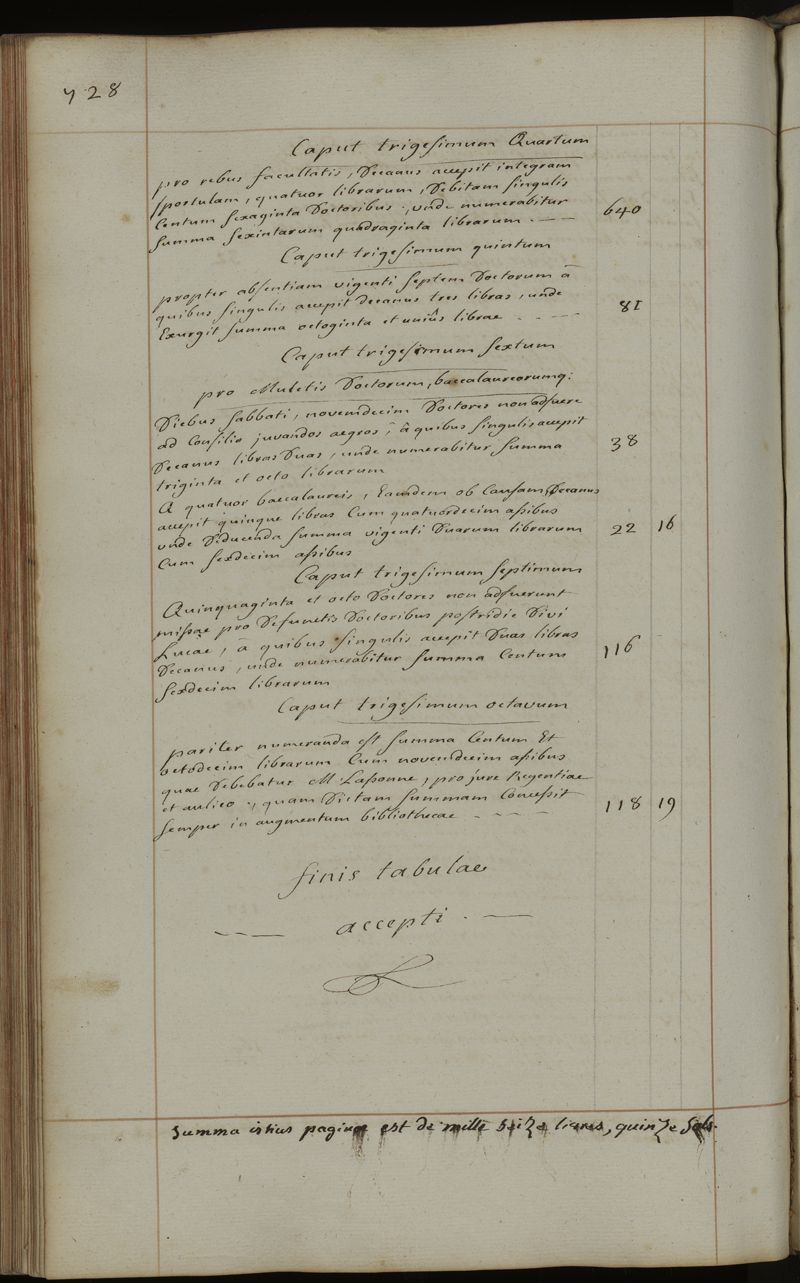 728
Caput trigesimum Quartum
pro rebus facultatis, Decanus accepit integram
sportulam, quatuor librarum, Debitam singulis
Centum sexaginta Doctoribus, unde numerabitur
summa sexintarum quadraginta librarum. — — 640
Caput trigesimum quintum
propter absentiam vigenti septem Doctorum â
quibus singulis accepit decanus tres libras, unde
Exurgit summa octoginta et unius librae - - - — 81
Caput trigesimum sextum
pro Mulctis Doctorum, baccalaureorumq:
Diebus sabbati, novemdecim Doctores non adfuere
ad Consilio juvandos aegros, â quibus singulis accepit
Decanus libras Duas, unde numerabitur summa 38
triginta et octo librarum
A quatuor baccalaureis, Eamdem ob Causam, Decanus
accepit quinque libras Cum quatuordecim assibus
unde Diducenda summa vigenti Duarum librarum 22 16
Cum sexdecim assibus
Caput trigesimum septimum
Quinquaginta et octo Doctores non adfuerunt
missae pro Defunctis Doctoribus postridie Divi
Lucae, â quibus singulis accepit Duas libras
Decanus, unde numerabitur summa Centum 116
sexdecim librarum
Caput trigesimum octavum
pariter numeranda est summa Centum Et
octodecim librarum Cum novemdecim assibus
quae Debebatur M. Lassonne, pro jure Regentiae
et aulico, quam Dictam summam Concessit
semper in augmentum bibliothecae - - - — 118 19
finis tabulae
accepti. —
Summa istius paginae est de mille seize livres, quinze sols.